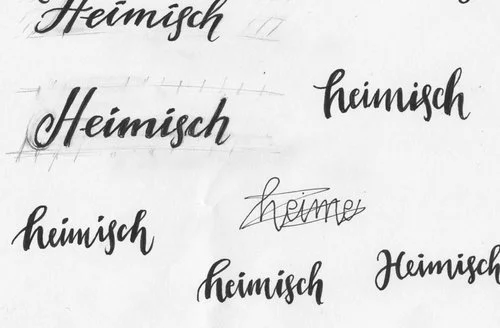 Heimisch
heimisch
Heimisch
heimisch
heimisch
Heimisch